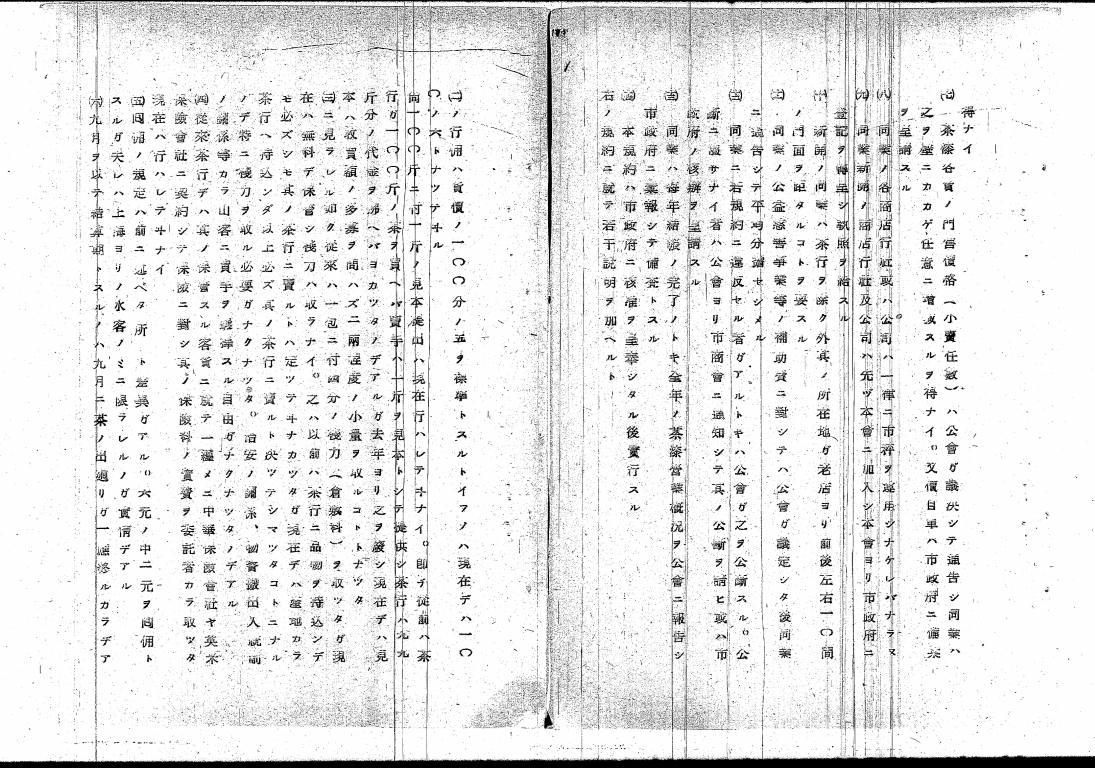 得ナイ
(七) 茶葉各賣ノ門售價格(小賣任價)ハ公會ガ議決シテ通告シ同業ハ
之ヲ壁ニカカゲ任意ニ增減スルヲ得ナイ。又價目單ハ市政府ニ備案
ヲ呈請スル
(八) 同業ノ各商店行社或ハ公司ハ一律ニ市秤ヲ運用シナケレバナラヌ
(九) 同業新開ノ商店行社及公司ハ先ヅ本會ニ加入シ本會ヨリ市政府ニ
登記ヲ轉呈シ執照ヲ給スル
(十) 新開ノ同業ハ茶行ヲ除ク外其ノ所在地ガ老店ヨリ前後左右一〇間
ノ門面ヲ距タルコトヲ要スル
同業ノ公益慈善事業等ノ補助費ニ對シテハ公會ガ議定シタ後同業
ニ通告シテ平均分擔セシメル
同業ニ若シ規約ニ違反セル者ガアルトキハ公會ガ之ヲ公斷スル。公
斷ニ服サナイ者ハ公會ヨリ市商會ニ通知シテ其ノ公斷ヲ請ヒ或ハ市
政府ノ核辦ヲ呈請スル
同業ハ每年結終ノ完了ノトキ全年ノ茶葉營業概況ヲ公會ニ報告シ
市政府ニ彙報シテ備査トスル
本規約ハ市政府ニ核准ヲ呈奉シタル後實行スル
右ノ規約ニ就テ若干說明ヲ加ヘルト
(一)ノ行佣ハ賣價ノ一〇〇分ノ五ヲ標準トスルトイフノハ現在デハ一〇
〇ノ六トナツテヰル
同一〇〇斤ニ付一斤ノ見本提出ハ現在行ハレテヰナイ。卽チ從前ハ茶
行ガ一〇〇斤ノ茶ヲ買ヘバ賣手ハ一斤ヲ見本トシテ提供シ茶行ハ九九
斤分ノ代價ヲ拂ヘバヨカツタノデアルガ去年ヨリ之ヲ廢シ現在デハ見
本ハ收買額ノ多寡ヲ問ハズ二兩程度ノ小量ヲ取ルコトトナツタ
(三)ニ見ラレル如ク從來ハ一包ニ付四分ノ棧力(倉敷料)ヲ取ツタガ現
在ハ無料デ保管シ棧力ハ取ラナイ。之ハ以前ハ茶行ニ品物ヲ持込ンデ
モ必ズシモ其ノ茶行ニ賣ルトハ定ツテヰナカツタガ現在デハ產地カラ
茶行ヘ持込ンダ以上必ズ其ノ茶行ニ賣ルト決ツテシマツタコトニナル
ノデ特ニ棧力ヲ取ル必要ガナクナツタ。治安ノ關係、物資搬出入統制
ノ關係等カラ山客ニ買手ヲ選擇スル自由ガナクナツタノデアル
(四)從來茶行デハ其ノ保管スル客貨ニ就テ一纏メニ中華保險會社ヤ英米
保險會社ニ契約シテ保險ニ對シ其ノ保險料ノ實費ヲ委託者カラ取ツタ
現在ハ行ハレテヰナイ
(五)回佣ノ規定ハ前ニ述ベタ所ト差異ガアル。六元ノ中二元ヲ回佣ト
スルガ夫レハ上海ヨリノ水客ノミニ限ラレルノガ實情デアル
(六)九月ヲ以テ結算期トスルノハ九月ニ茶ノ出廻リガ一應終ルカラデア